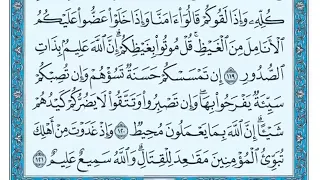 كُلِّهِۦ وَإِذَا لَقُوكُمْ قَالُوٓا۟ ءَامَنَّا وَإِذَا خَلَوْا۟ عَضُّوا۟ عَلَيْكُمُ
ٱلْأَنَامِلَ مِنَ ٱلْغَيْظِ ۚ قُلْ مُوتُوا۟ بِغَيْظِكُمْ ۗ إِنَّ ٱللَّهَ عَلِيمٌۢ بِذَاتِ
ٱلصُّدُورِ ١١٩ إِن تَمْسَسْكُمْ حَسَنَةٌ تَسُؤْهُمْ وَإِن تُصِبْكُمْ
سَيِّئَةٌ يَفْرَحُوا۟ بِهَا ۖ وَإِن تَصْبِرُوا۟ وَتَتَّقُوا۟ لَا يَضُرُّكُمْ كَيْدُهُمْ
شَيْـًٔا ۗ إِنَّ ٱللَّهَ بِمَا يَعْمَلُونَ مُحِيطٌ ١٢٠ وَإِذْ غَدَوْتَ مِنْ أَهْلِكَ
تُبَوِّئُ ٱلْمُؤْمِنِينَ مَقَـٰعِدَ لِلْقِتَالِ ۗ وَٱللَّهُ سَمِيعٌ عَلِيمٌ ١٢١